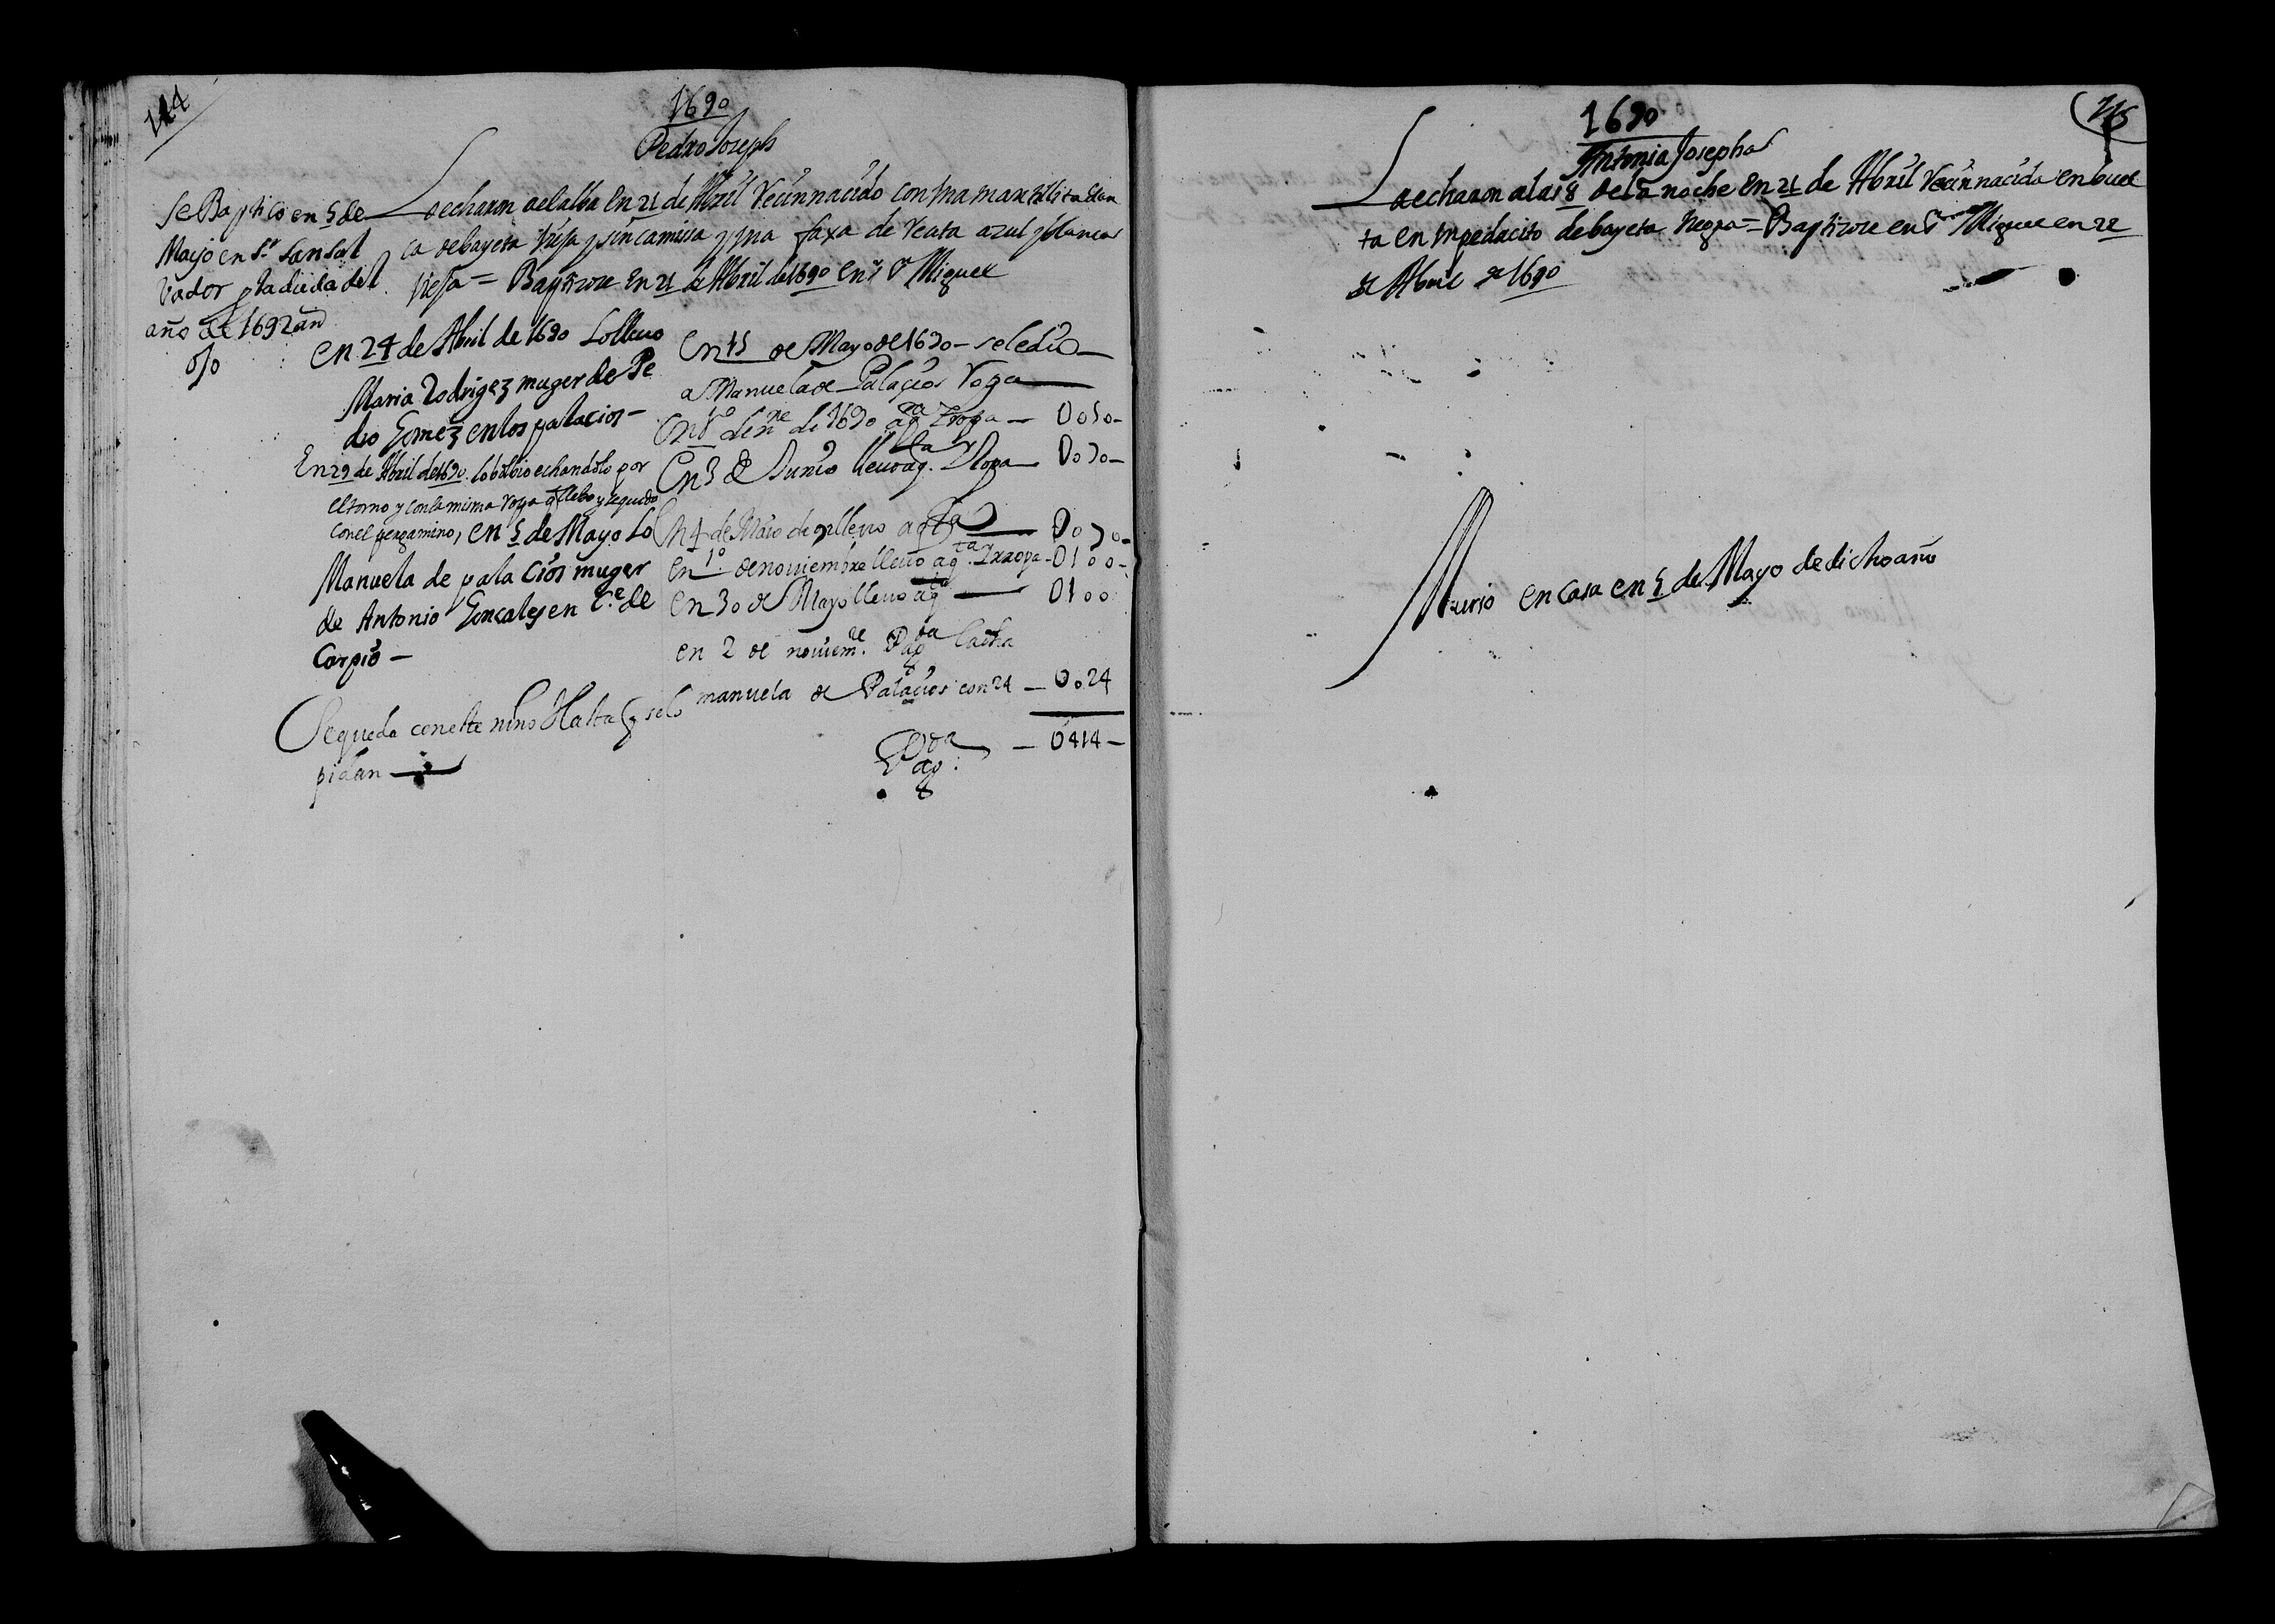 114
1690
Pedro Joseph
Lo echaron al alba en 21 de Abril Recinnacido con una mantillita blan
ca de bayeta vieja y sin camissa y una faxa de reata azul y blanca
vieja = Baptizose en 21 de Abril de 1690 en S.r S.n Miguel
Se Baptico en 5 de
Mayo en S.r San Sal
vador
año de 1692
%
en 24 de Abril de 1690 Lo lleuo
Maria Rodrigez muger de Pe
dro Gomez en los palacios –
En 29 de Abril de 1690 lo bolbio echandolo por
el torno y con la misma ropa q llebo y se quedo
con el pergamino, en 5 de Mayo Lo
Manuela de palacios muger
de Antonio Goncales en C.e de
Carpio –
Se queda con este niño Hasta q se lo
pidan
en 15 de Mayo de 1690 – se le dio
a Manuela de Palacios Ropa
en 8 de 1690 ag.ta y ropa – 0050 –
en 3 de Junio lleuo ag.ta y Ropa 0070 –
en 4 de Maio de 91 lleuo ag.ta 0070 –
en 1.º de nouiembre lleuo ag.ta y Ropa – 0100 –
en 30 de Mayo lleuo ag.ta 0100
en 2 de nouiem.re Pag.da
manuela de Palacios con 24 – 0024
Pag.da – 0414 –
115
1690
Antonia Josepha
La echaron a las 8 de la noche en 21 de Abril Recinnacida enbuel
ta en un pedacito de bayeta negra = Baptizose en S.n Miguel en 22
de Abril de 1690
Murio en casa en 5 de Mayo de dicho año